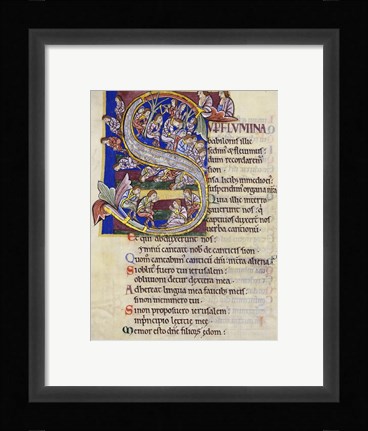 SUP FLUMINA
babilonis illic
sedimus & flevimus:
dum recordaremur
sion
In salicibus in medio ei:
suspendimus organa nra
Quia illic interro
gaverunt nos: q
captivos duxerunt nos
verba cantionu
Et qui abduxerunt nos:
ymnu cantate nob de canticis sion
Quom cantabim canticu dni: in terra aliena
Si oblitus fuero tui ierusalem:
oblivioni detur dextera mea
Adhereat lingua mea faucibus meis:
si non meminero tui
Si non proposuero ierusalem:
in principio leticie mee
Memor esto dne filioru edom: